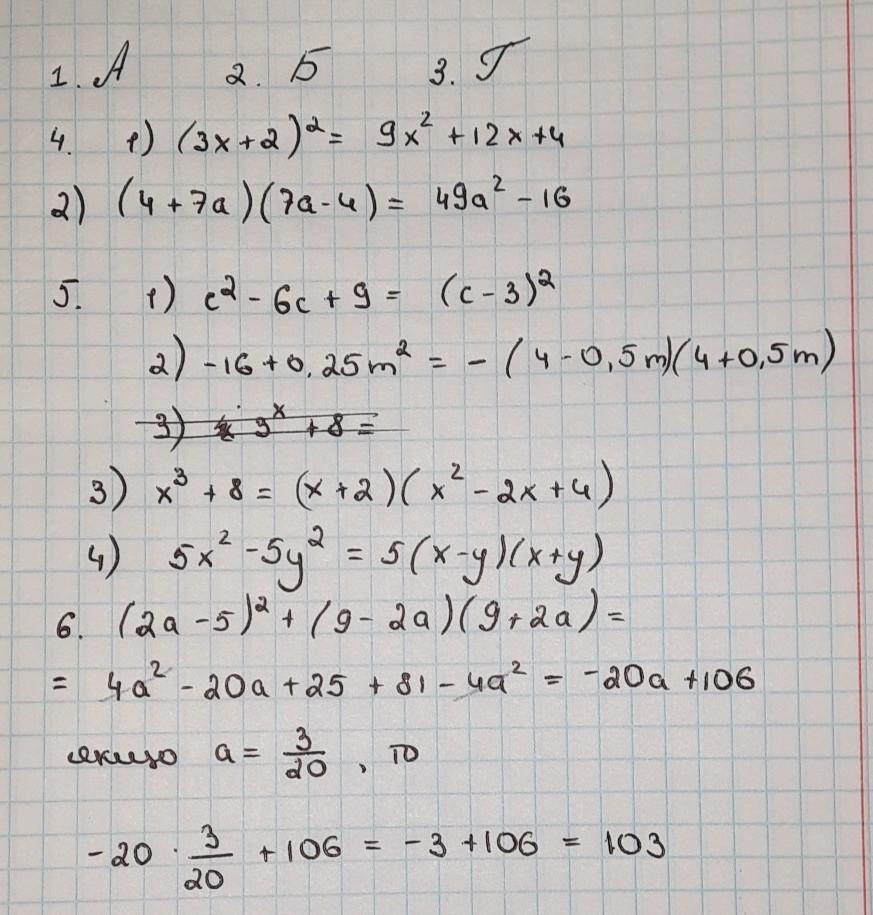 1. А 2. Б 3. Г
4. 1) (3x+2)² = 9x² + 12x + 4
2) (4 + 7a)(7a - 4) = 49a² - 16
5. 1) c² - 6c + 9 = (c - 3)²
2) -16 + 0,25m² = - (4 - 0,5m)(4 + 0,5m)
3) 9ˣ + 8 =
3) x³ + 8 = (x + 2)(x² - 2x + 4)
4) 5x² - 5y² = 5(x - y)(x + y)
6. (2a - 5)² + (9 - 2a)(9 + 2a) =
= 4a² - 20a + 25 + 81 - 4a² = -20a + 106
якщо a = 3/20, то
-20 · 3/20 + 106 = -3 + 106 = 103